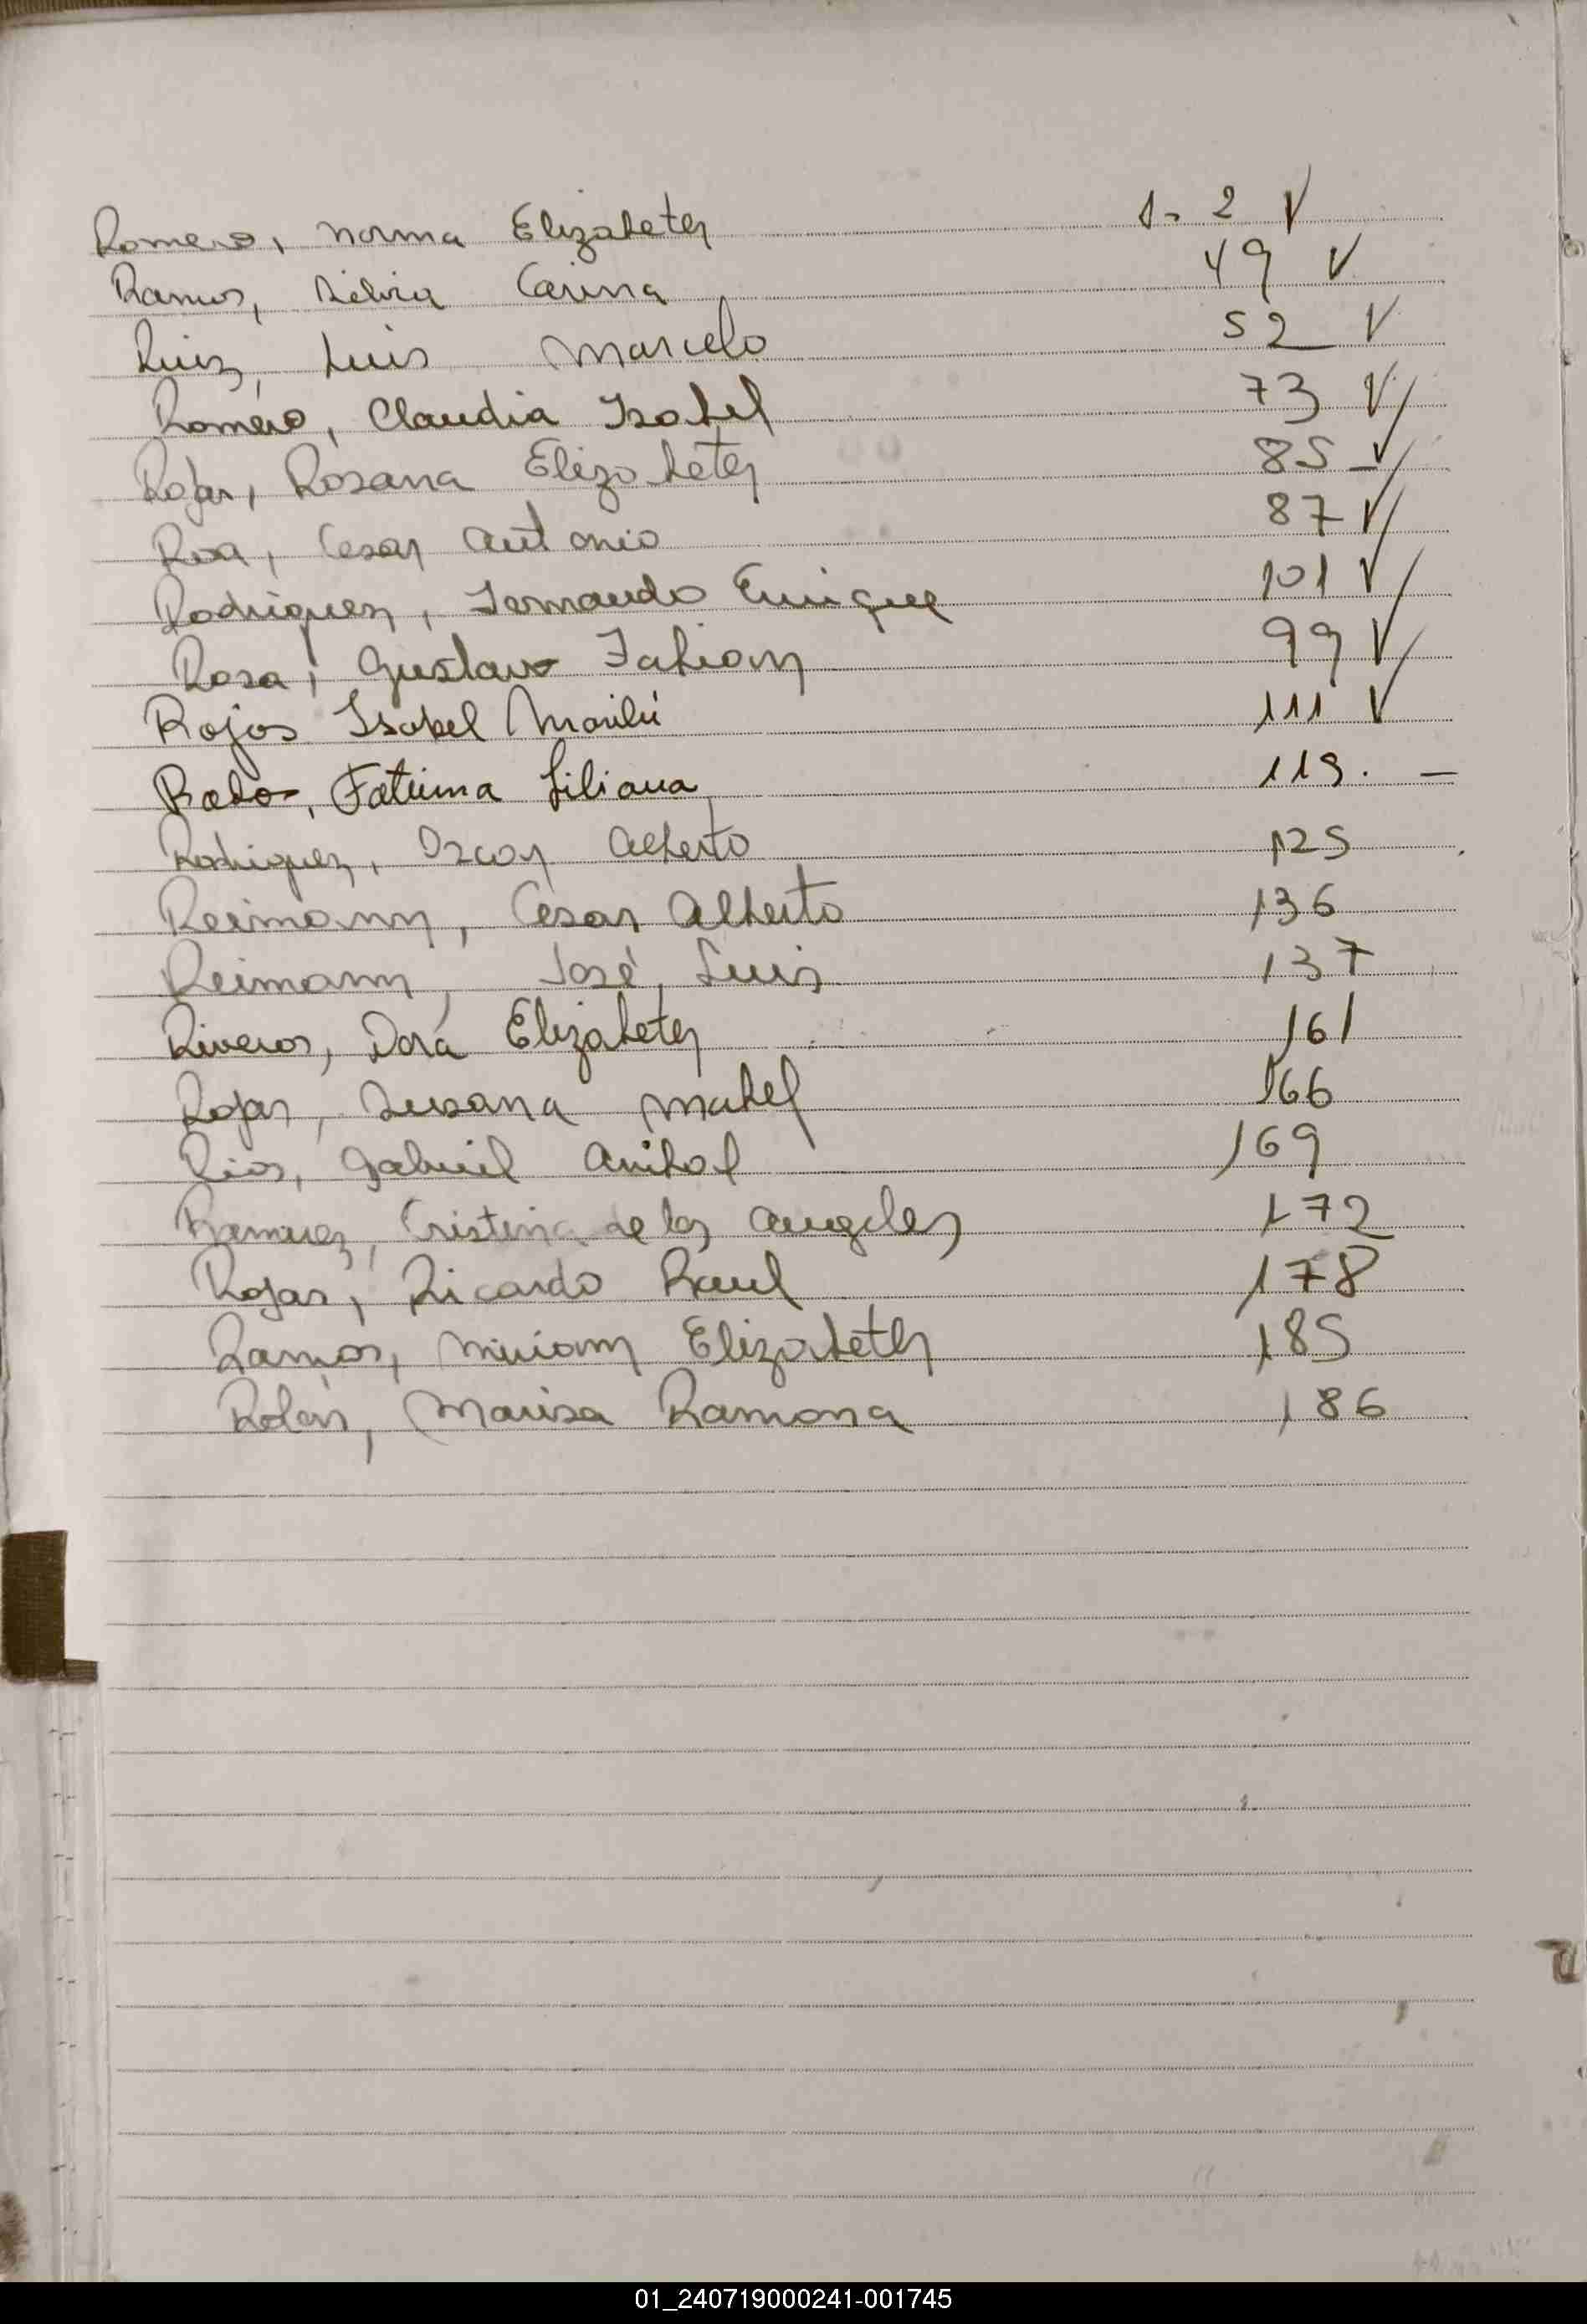 Romero, Norma Elizabeth 1- 2 ✓
Ramos, Silvia Carina 49 ✓
Ruiz, Luis Marcelo 52 ✓
Romero, Claudia Isabel 73 ✓
Rojas, Rosana Elizabeth 85 ✓
Roa, Cesar Antonio 87 ✓
Rodriguez, Fernando Enrique 101 ✓
Rosa, Gustavo Fabian 99 ✓
Rojas Isabel Marilú 111 ✓
Fatima Liliana 119. —
Rodriguez, Oscar Alberto 125
Reimann, César Alberto 136
Reimann, José Luis 137
Riveros, Dora Elizabeth 161
Rojas, Susana Mabel 166
Rios, Gabriel Anibal 169
Ramirez, Cristina de los Angeles 172
Rojas, Ricardo Raul 178
Ramos, Miriam Elizabeth 185
Rolón, Marisa Ramona 186
01_240719000241-001745